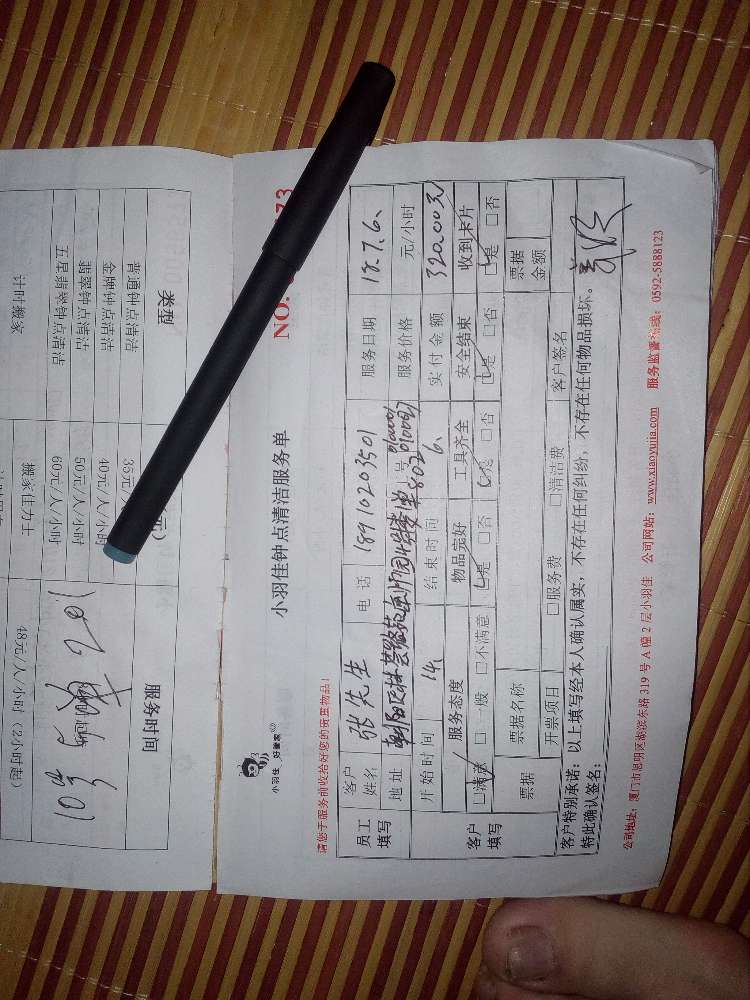 小羽佳 好管家
NO. 73
小羽佳钟点清洁服务单
请您于服务前收拾好您的贵重物品!
员工填写 客户姓名 张先生 电话 18910203501 服务日期 18.7.6、
地址 802 服务价格 元/小时
开始时间 14 结束时间 6、 实付金额 320.00元
客户填写 服务态度 物品完好 工具齐全 安全结束 收到卡片
□满意 □一般 □不满意 □是 □否 □是 □否 □是 □否 □是 □否
票据 票据名称 票据金额
开票项目 □服务费 □清洁费 客户签名
客户特别承诺:以上填写经本人确认属实,不存在任何纠纷,不存在任何物品损坏。
特此确认签名:
公司地址:厦门市思明区湖滨东路 319 号 A 幢 2 层小羽佳 公司网站:www.xiaoyujia.com 服务监督热线:0592-5888123
类型 元) 服务时间
普通钟点清洁 35元/人/小时
金牌钟点清洁 40元/人/小时
翡翠钟点清洁 50元/人/小时
五星翡翠钟点清洁 60元/人/小时
计时搬家 搬家佳力士 48元/人/小时(2小时起)
10号 201